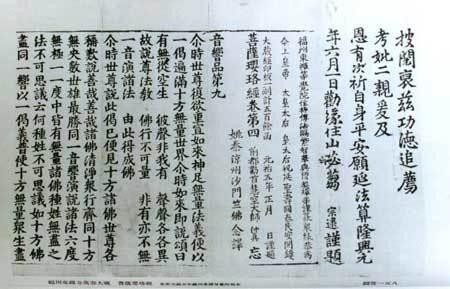 披閱裒茲功德追薦
考妣二親爰及
恩有次祈自身平安願延法算隆興元
年六月一日勸緣住山
宗逮謹題
福州東禪等覺院住持傳法
今上皇帝 太皇太后 皇太后祝延聖壽國泰民安開鏤
大藏經印板一副計五百餘函 元祐五年正月 日謹題
菩薩瓔珞經卷第四 前都勸首慧空大師沖真 忘
姚秦涼州沙門竺佛念譯
音響品第九
尒時世尊復欲重宣如來神足無量法義便以
一偈遍滿十方無量世界尒時如來即說頌曰
有無從空生 彼聲非我有
故說尊法教 佛行不可量 非有亦不無
一音演諸法 由此得成佛
尒時世尊說此偈已便見十方諸佛世尊各
稱歎說善哉善哉諸佛清淨眾行齊同十方
無央數世雄最勝同一音響演說諸法六度
無極一一度中皆有無量諸佛種姓無盡之
法不可思議云何種姓不可思議如十方佛
盡同一響以一偈義普使十方無量眾生盡